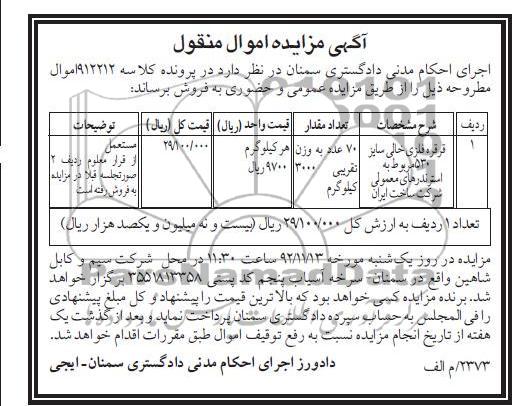 آگهی مزایده اموال منقول
اجرای احکام مدنی دادگستری سمنان در نظر دارد در پرونده کلاسه ۹۱۲۲۱۲اموال
مطروحه ذیل را از طریق مزایده عمومی و حضوری به فروش برساند:
ردیف شرح مشخصات تعداد مقدار قیمت واحد (ریال) قیمت کل (ریال) توضیحات
۱ قرقره فلزی خالی سایز ۷۰ عدد به وزن هر کیلوگرم ۲۹/۱۰۰/۰۰۰ مستعمل
۵۳۰مربوط به تقریبی ۹۷۰۰ ریال از قرار معلوم ردیف ۲
استوندرهای معمولی ۳۰۰۰ صورتجلسه قبلا در مزایده
شرکت ساخت ایران کیلوگرم به فروش رفته است
تعداد ۱ ردیف به ارزش کل ۲۹/۱۰۰/۰۰۰ ریال (بیست و نه میلیون و یکصد هزار ریال)
مزایده در روز یک‌شنبه مورخه ۹۲/۱۱/۱۳ ساعت ۱۱:۳۰ در محل شرکت سیم و کابل
شاهین واقع در سمنان- سرخه آسیاب پنجم کد پستی ۳۵۵۱۸۱۳۳۵۸ برگزار خواهد
شد. برنده مزایده کسی خواهد بود که بالاترین قیمت را پیشنهاد و کل مبلغ پیشنهادی
را فی المجلس به حساب سپرده دادگستری سمنان پرداخت نماید و بعد از گذشت یک
هفته از تاریخ انجام مزایده نسبت به رفع توقیف اموال طبق مقررات اقدام خواهد شد.
۲۳۷۳/م الف دادورز اجرای احکام مدنی دادگستری سمنان- ایجی
ParsNamadData